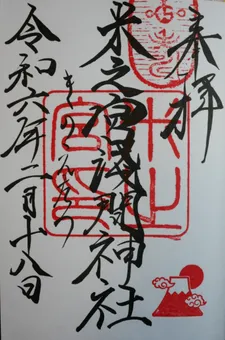 奉拝
米之宮浅間神社
米之
宮印
令和六年二月十八日